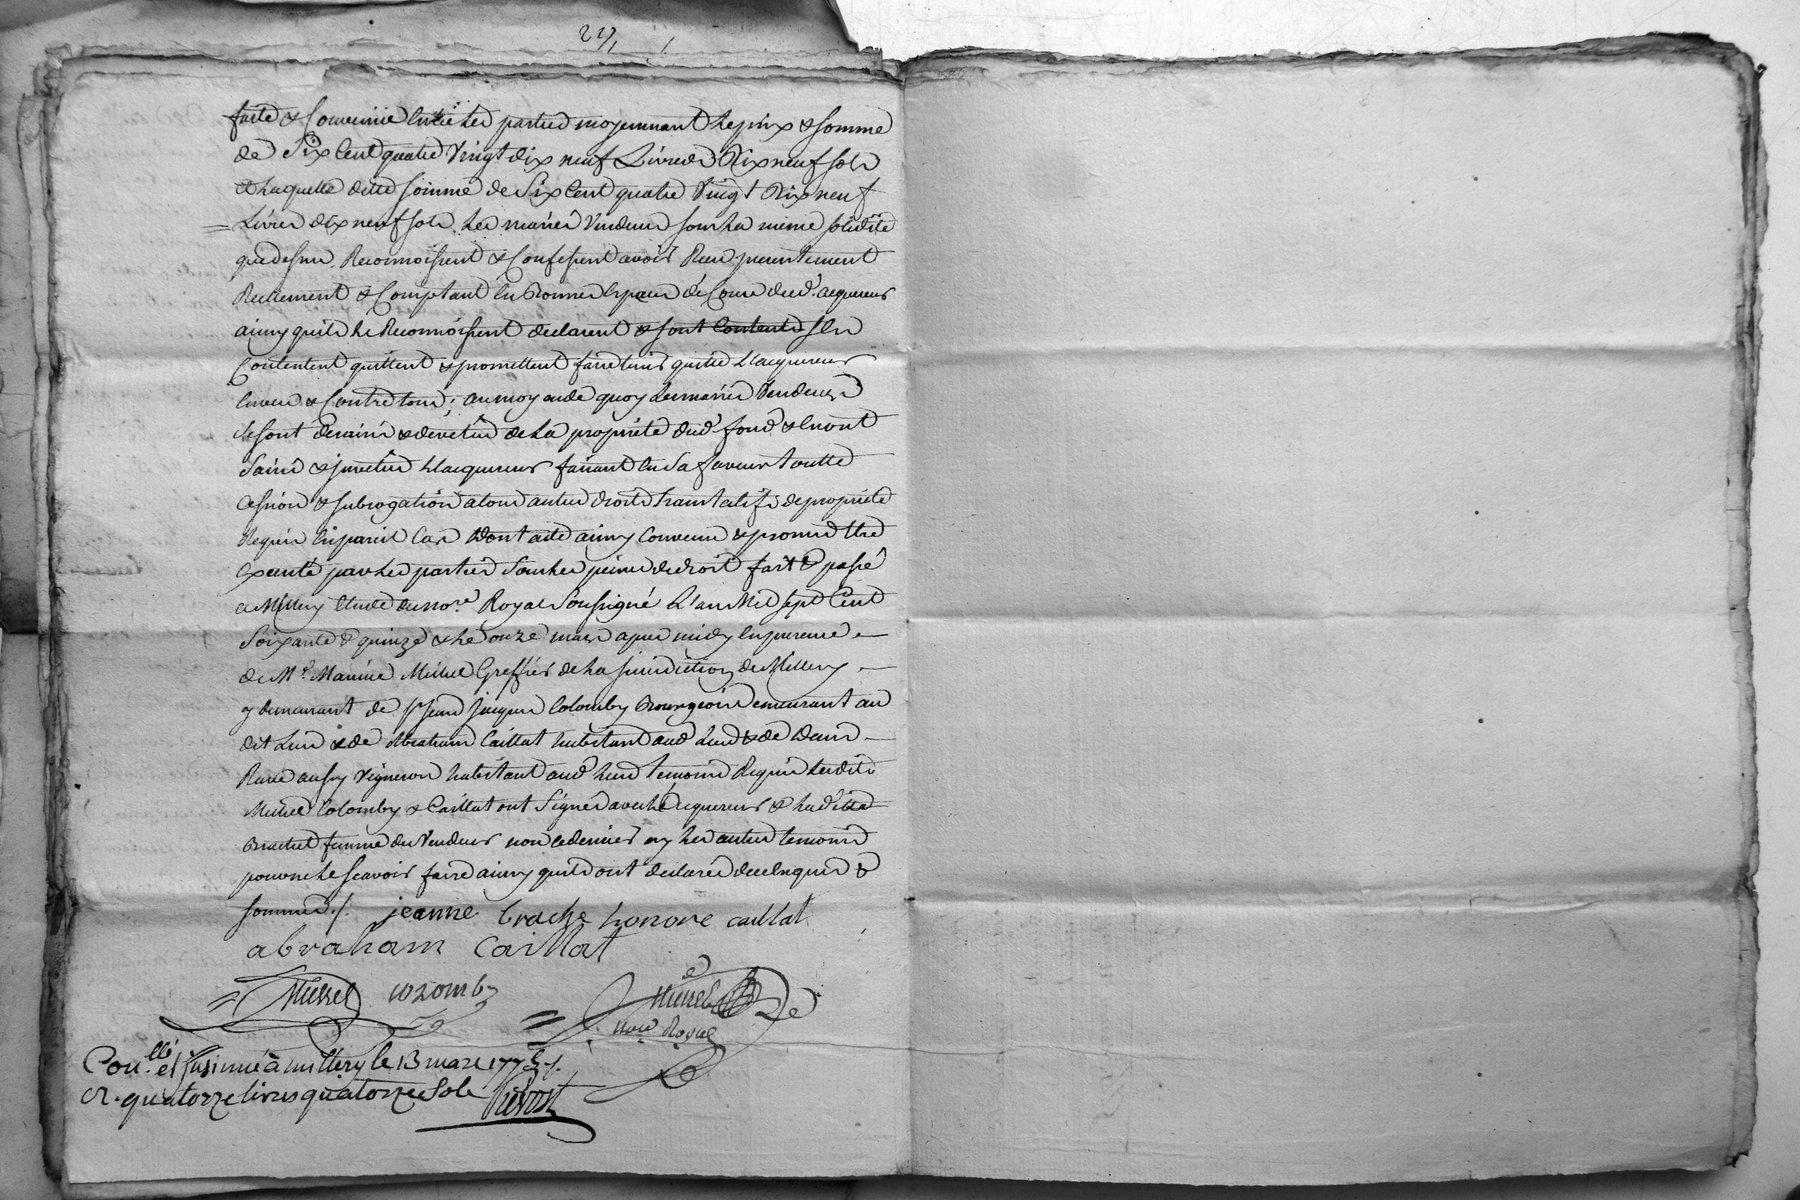 faite & Convenüe Entre Les parties moyennant Le prix & somme
de Six Cent quatre Vingt dix neuf Livres Dix neuf sols
& Laquelle ditte somme de Six Cent quatre Vingt Dix neuf
Livres dix neuf sols Les mariés Vendeurs sous La meme solidité
que dessus Reconnoissent & Confessent avoir Reçu presentement
Reellement & Comptant En Bonnes Especes de Cours dud. acquereur
ainsy quils Le Reconnoissent declarent & sont Contents s'En
Contentent quittent & promettent faire tenir quitte L'acquereur
Envers & Contre tous; au moyen de quoy Les mariés Vendeurs
se sont demis & devetus de La proprieté dud. fond & En ont
Saisi & investu L'acquereur faisant En Sa faveur toutte
Cession & subrogation a tous autres droits translatifs de proprieté
Requis En pareil Cas Dont acte ainsy Convenu & promis Etre
Executé par Les parties Sous Les peines de droit fait & passé
a Millery Etude du no.re Royal Soussigné L'an Mil sept Cent
Soixante & quinze & Le onze mars apres midy En presence
de M.e Maurice Missel Greffier de La jurisdiction de Millery
y demeurant de s.r jean jacques Colomby Bourgeois Demeurant au
dit Lieu & de Abraham Caillat habitant aud. Lieu & de Denis
aussy Vigneron habitant aud. Lieu temoins Requis Lesdits
Missel Colomby & Caillat ont Signés avec L'acquereur & Laditte
Brachet femme du Vendeur non ce dernier ny Les autres temoins
pour ne Le scavoir faire ainsy quils ont declarés de ce Enquis &
sommés ./. jeanne brache honore caillat
abraham Caillat
Missel colomby Missel
No.re Royal
Con.llé et insinué à millery le 13 mars 1775 ./.
R. quatorze livres quatorze Sols Prevost